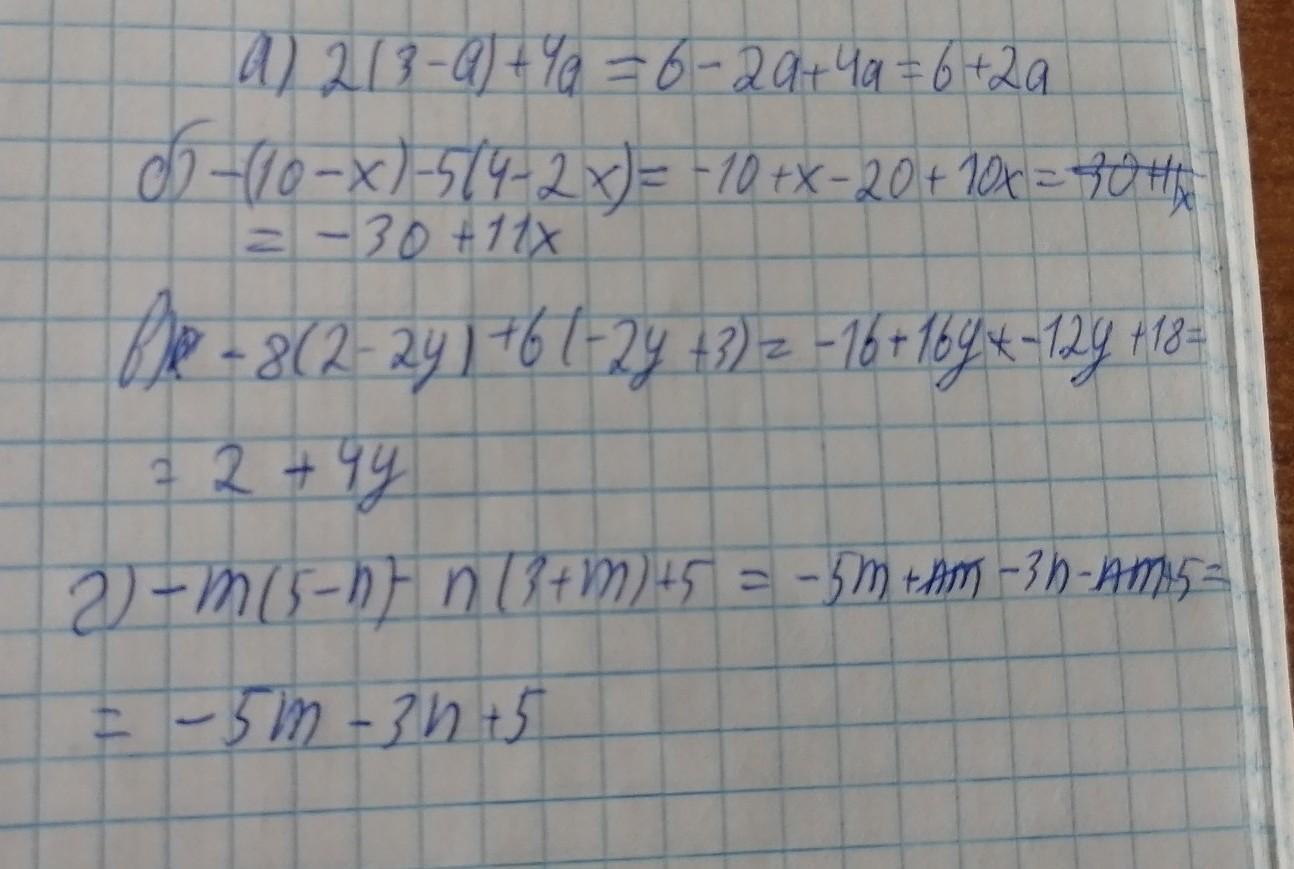 а) 2(3-a)+4a=6-2a+4a=6+2a
б) -(10-x)-5(4-2x)=-10+x-20+10x=-30+11x
=-30+11x
в) -8(2-2y)+6(-2y+3)=-16+16y+-12y+18=
=2+4y
г) -m(5-n)-n(3+m)+5=-5m+nm-3n-nm+5=
=-5m-3n+5